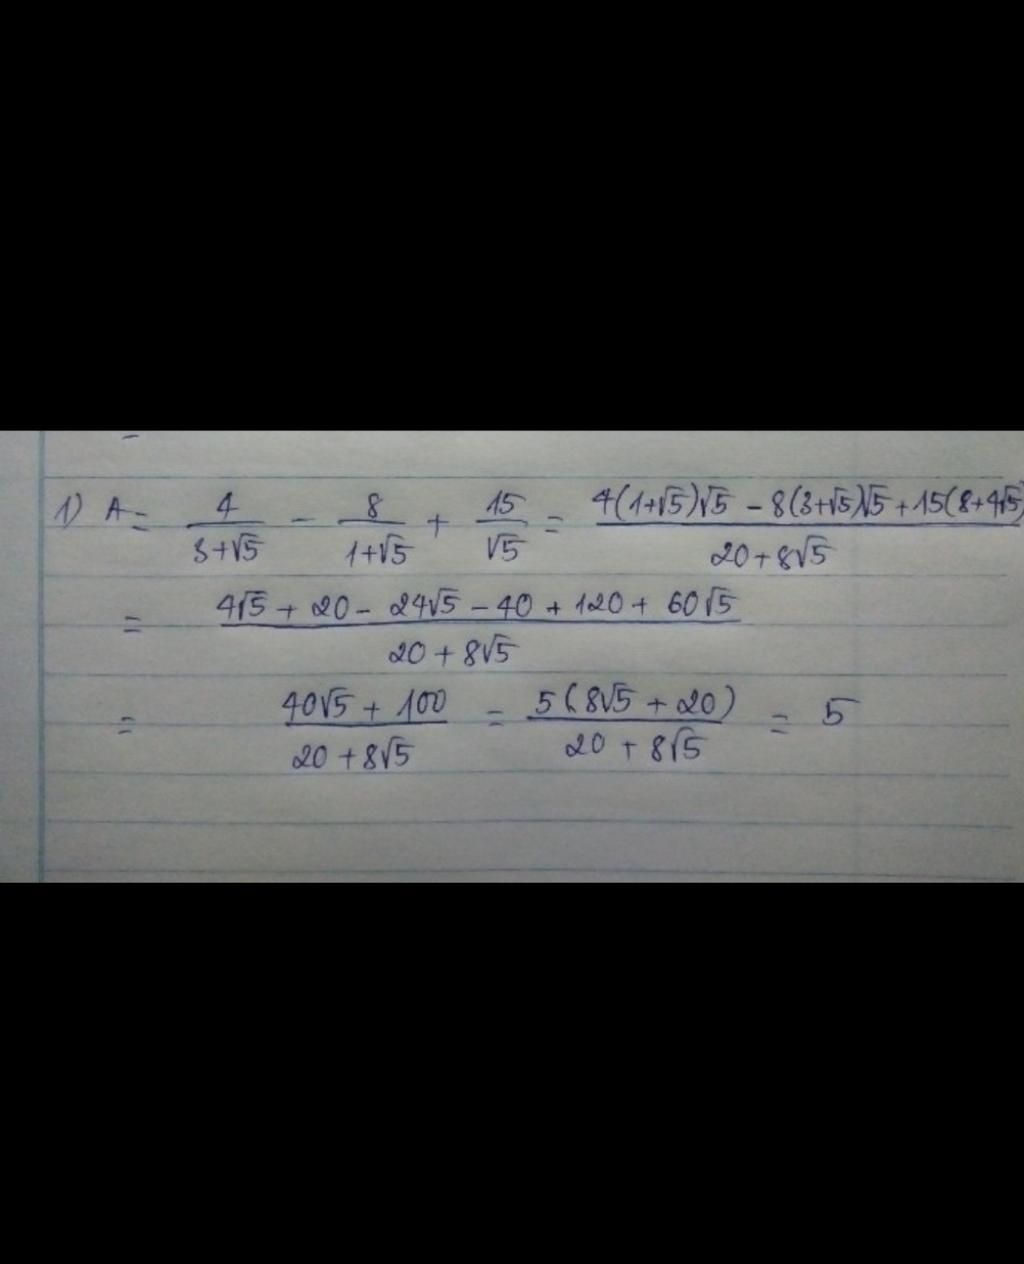 1) A = 4/(3+√5) - 8/(1+√5) + 15/√5 = (4(1+√5)√5 - 8(3+√5)√5 + 15(8+4√5))/(20+8√5)
= (4√5 + 20 - 24√5 - 40 + 120 + 60√5)/(20+8√5)
= (40√5 + 100)/(20+8√5) = 5(8√5 + 20)/(20+8√5) = 5